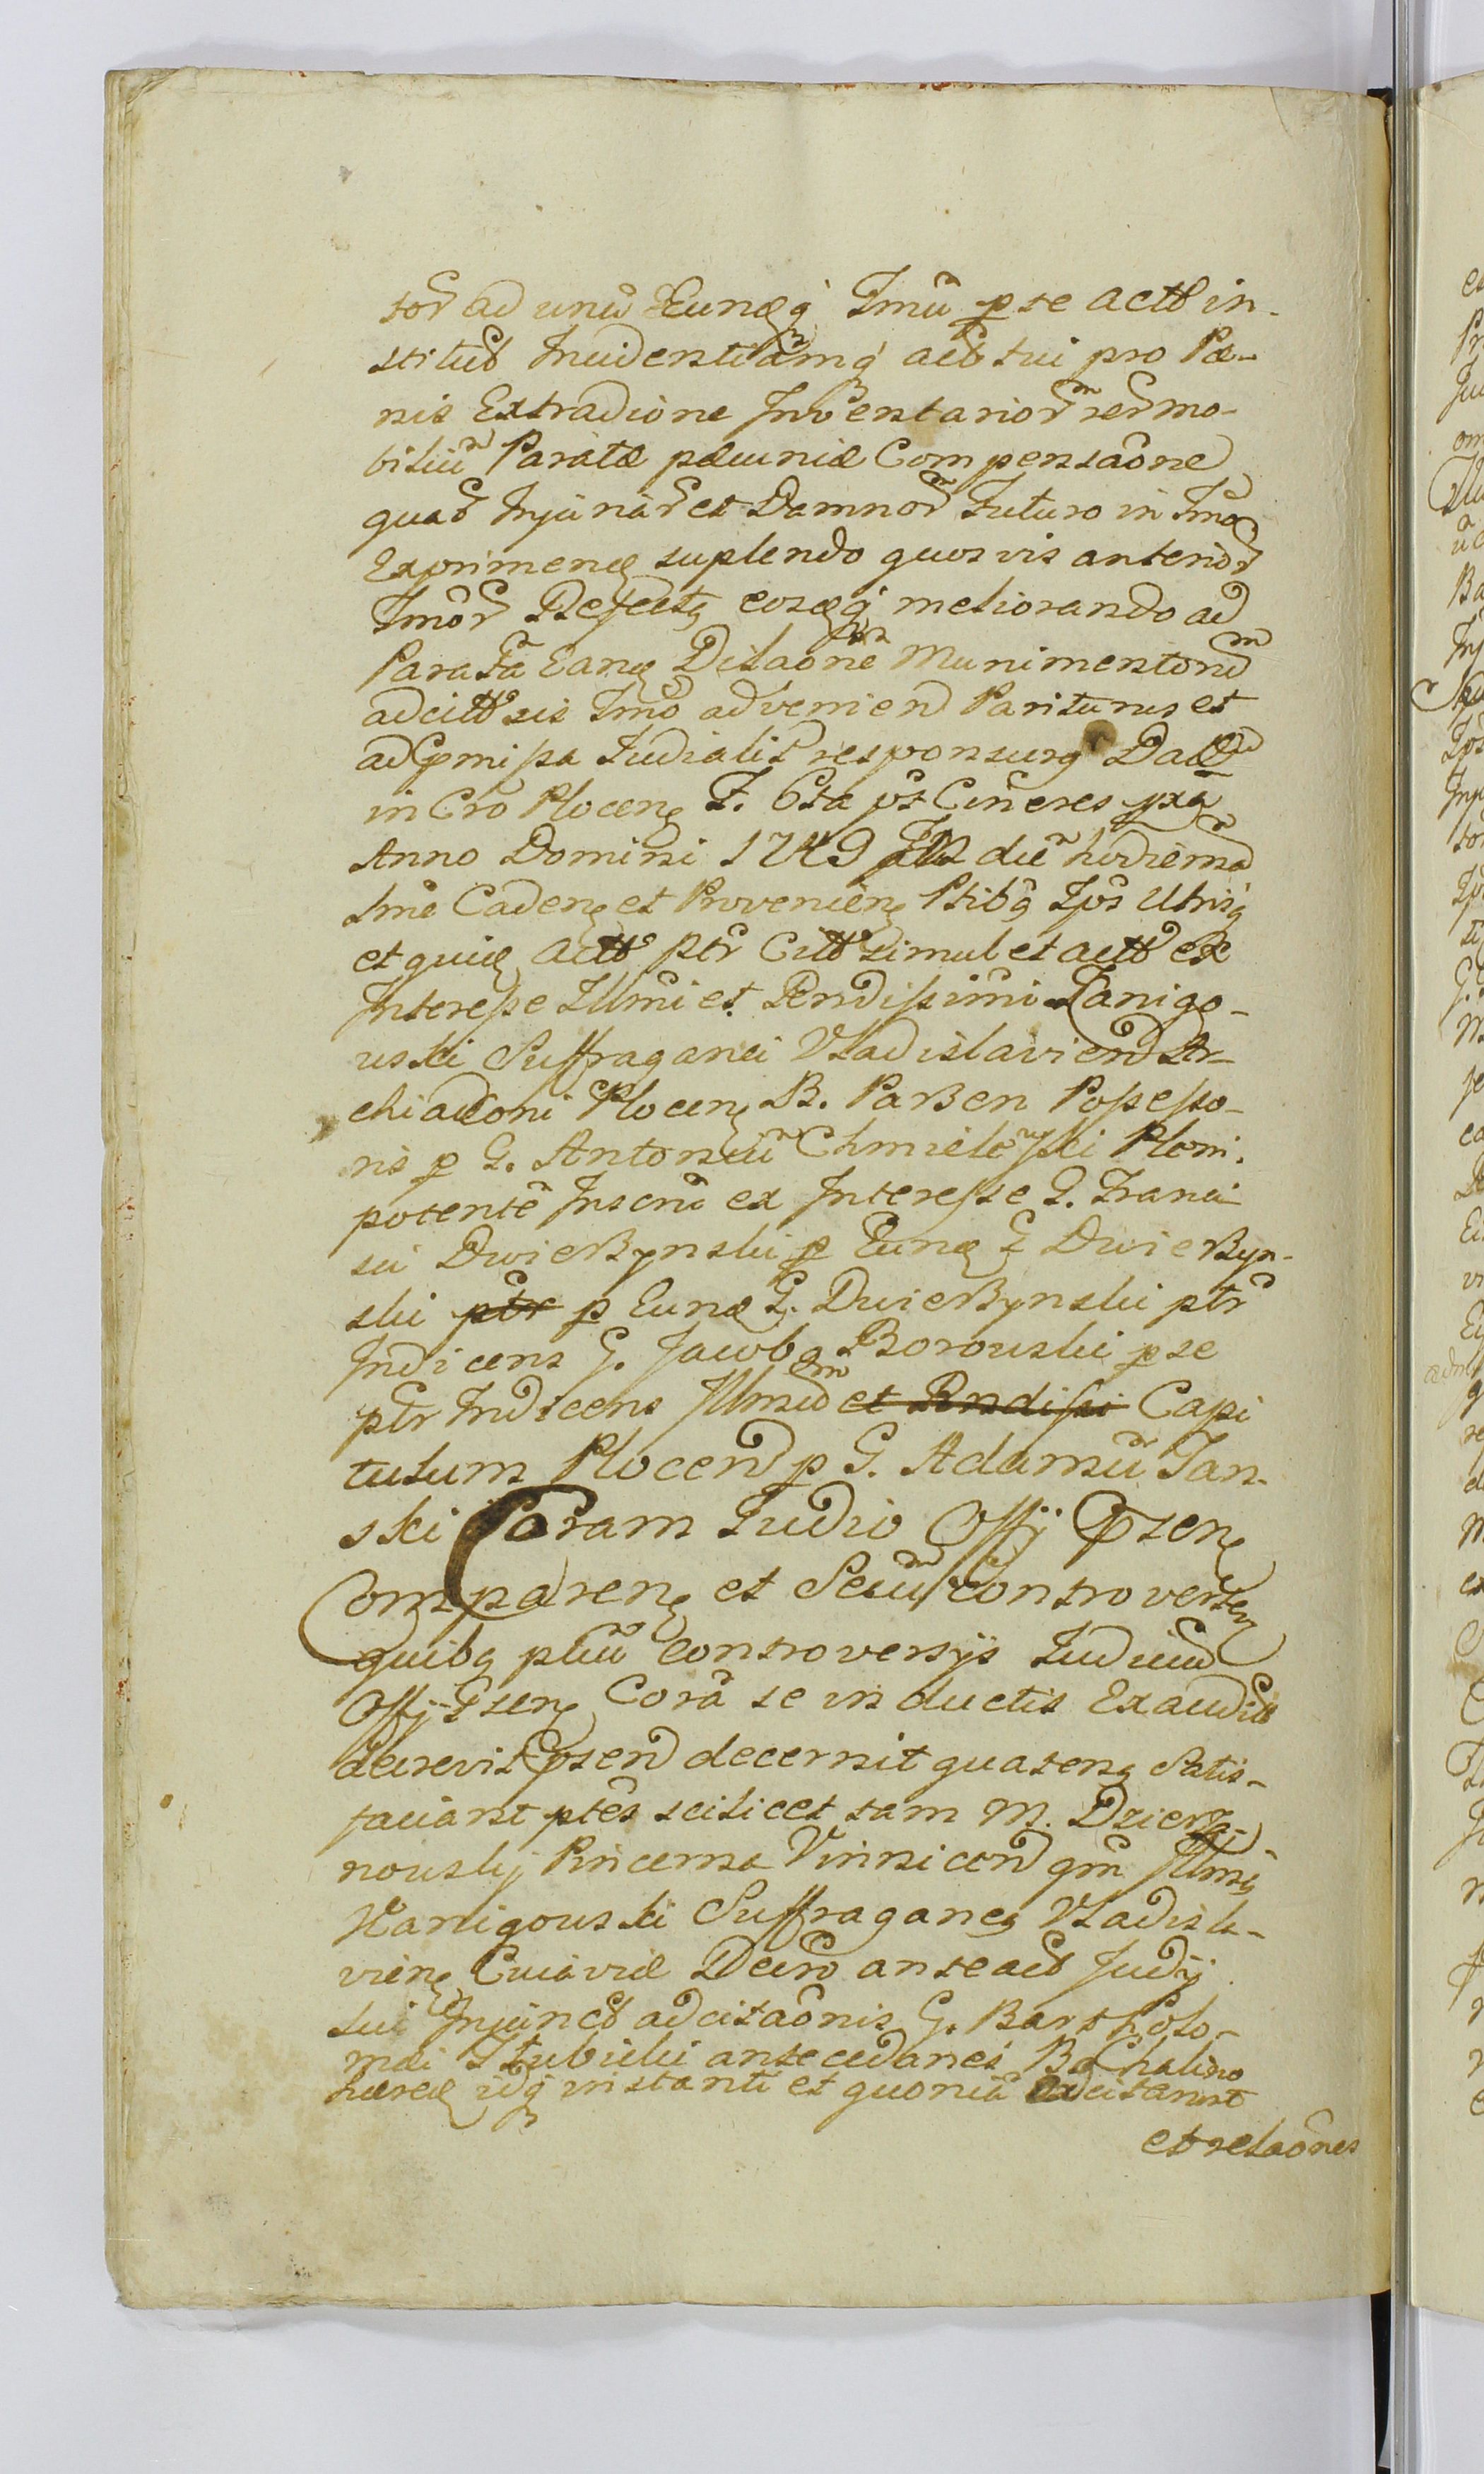 tor ad unũ Eundq Tmũ p se actt in-
stitutt Incidentiamq actt sui pro Pæ-
nis Extradione Inventarior rer mo-
biliũ Paratæ pæcuniæ Compensaõne
quar Injuriar et Damnor Futuro in Tmo
Exprimen suplendo quosvis anterior
Tmor Defectg eosdq meliorando ad
Parata Ean Dilaõne Munimentor
adcitt sis Tmo advenien Pariturus et
ad pmissa Judialir responsurg Datt
in Cro Plocen F. 6ta pt Cineres pxa
Anno Domini 1749 die hodierna
tme Caden et Provenien Ptibg Ips Utrisq
et quid actt ptr Citt simul et actt ex
Interesse Illmi et Rndissimi Kanigo-
uski Suffraganei Vladislavien Ar-
chiadconi Plocen B. Parzen Possesso-
ris p G. Antoniũ Chmielewski Pleni.
potentẽ Inscrũ ex Interesse G. Franci
sci Dwierzynski p Eund G Dwierzyn-
ski ptr p Eund G. Dwierzynski ptr
Indicens G. Jacobg Borouski p se
ptr Indicens Illmũ et Rndissi Capi
tulum Plocen p G. Adamũ Jan-
ski Coram Judio Offij Psen
Comparen et Secũ controverten
quibg ptiũ controversijs Judiciũ
Offij Psen Corã se inductis Exauditt
decrevit psen decernit quateng Satis-
faciant ptes scilicet tam M. Dzierza-
nouskij Pincerna Vinnicen qm Illmg
Kanigouski Suffraganeg Vladisla-
vien Cuiaviæ Decro anteactt Judij
sui Injunctt adcitaõnis G. Bartholo-
mæi Stubicki antecedanei B. Chalino
hæred idq instanti et quoniã adcitarunt
et relaõnes